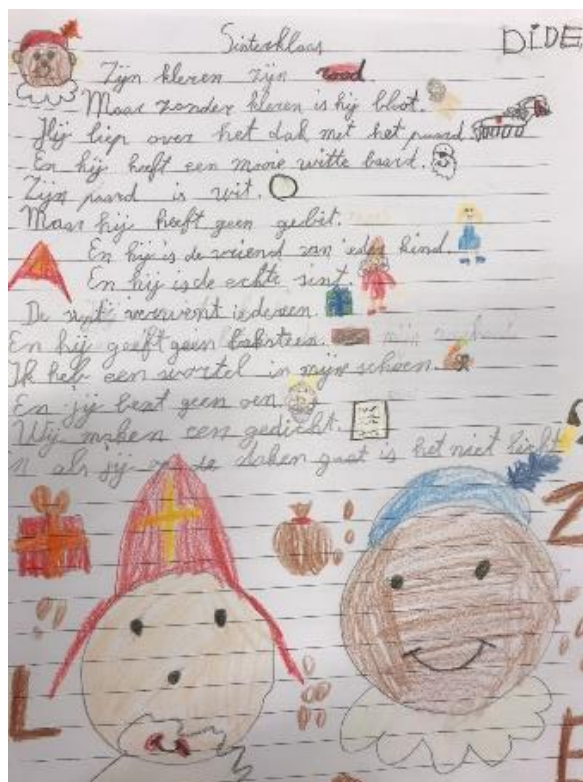 Sinterklaas
DIDE
Zijn kleren zijn rood
Maar zonder kleren is hij bloot.
Hij liep over het dak met het paard
En hij heeft een mooie witte baard.
Zijn paard is wit.
Maar hij heeft geen gebit.
En hij is de vriend van ieder kind.
En hij is de echte sint.
De sint verwent iedereen.
En hij geeft geen baksteen.
Ik heb een wortel in mijn schoen.
En jij bent geen oen.
Wij maken een gedicht.
n als jij op de daken gaat is het niet licht
Z
L
E